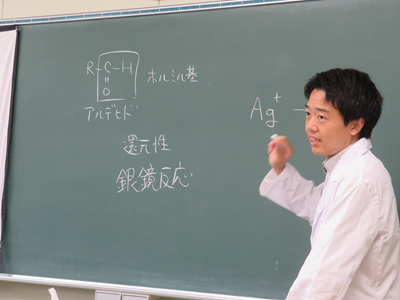 R-C-H
O
ホルミル基
アルデヒド
還元性
銀鏡反応
Ag+